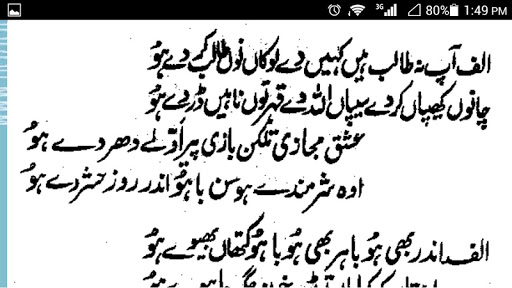 3G 80% 1:49 PM
الف آپ نہ طالب ہیں کہیں دے لوکاں نوں طالب کردے ہو
چانوں کھیپاں کردے سیپاں اللہ دے قہر توں ناہیں ڈردے ہو
عشق مجازی تلکن بازی پیر اَوّلے دھردے ہو
اوہ شرمندے ہوسن باہو اندر روز حشر دے ہو
الف اندر بھی ہو باہر بھی ہو باہو کتھاں لبھیوے ہو